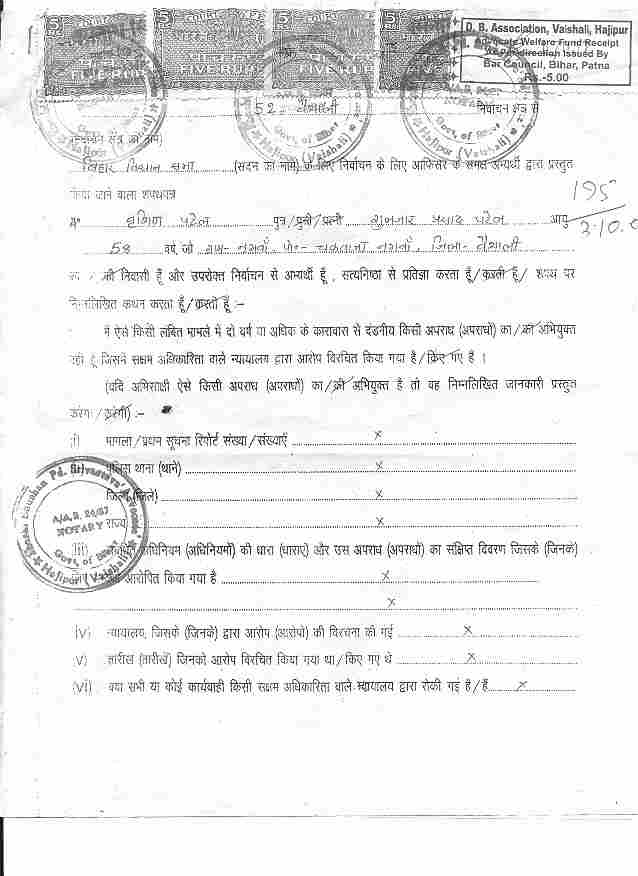 D. B. Association, Vaishali, Hajipur
Advocate Welfare Fund Receipt
Issued By
Bar Council, Bihar, Patna
Rs.-5.00
FIVE RUPEES
NOTARY
Govt. of Bihar
Hajipur (Vaishali)
52- वैशाली निर्वाचन क्षेत्र से
(निर्वाचन क्षेत्र का नाम)
बिहार विधान सभा (सदन का नाम) के लिए निर्वाचन के लिए आफिसर के समक्ष अभ्यर्थी द्वारा प्रस्तुत
किया जाने वाला शपथपत्र
195
मैं पटेल पुत्र/पुत्री/पत्नी प्रसाद पटेल आयु
58 वर्ष, जो ग्राम- पो०- जिला- वैशाली
का / की निवासी हूँ और उपरोक्त निर्वाचन से अभ्यर्थी हूँ, सत्यनिष्ठा से प्रतिज्ञा करता हूँ/करती हूँ/ शपथ पर
निम्नलिखित कथन करता हूँ/करती हूँ :-
मैं ऐसे किसी लंबित मामले में दो वर्ष या अधिक के कारावास से दंडनीय किसी अपराध (अपराधों) का/की अभियुक्त
नहीं हूँ जिसमें सक्षम अधिकारिता वाले न्यायालय द्वारा आरोप विरचित किया गया है/किए गए है ।
(यदि अभिसाक्षी ऐसे किसी अपराध (अपराधों) का/की अभियुक्त है तो वह निम्नलिखित जानकारी प्रस्तुत
करेगा/करेगी) :-
(i) मामला/प्रथम सूचना रिपोर्ट संख्या/संख्याएँ x
पुलिस थाना (थाने) x
जिला (जिले) x
राज्य x
Pd. Srivastava
NOTARY
Govt. of Bihar
Hajipur (Vaishali)
(iii) संबंधित अधिनियम (अधिनियमों) की धारा (धाराएं) और उस अपराध (अपराधों) का संक्षिप्त विवरण जिसके (जिनके)
आरोपित किया गया है x
x
(iv) न्यायालय, जिसके (जिनके) द्वारा आरोप (आरोपों) की विरचना की गई x
(v) तारीख (तारीखें) जिनको आरोप विरचित किया गया था/किए गए थे x
(vi) क्या सभी या कोई कार्यवाही किसी सक्षम अधिकारिता वाले न्यायालय द्वारा रोकी गई है/हैं x